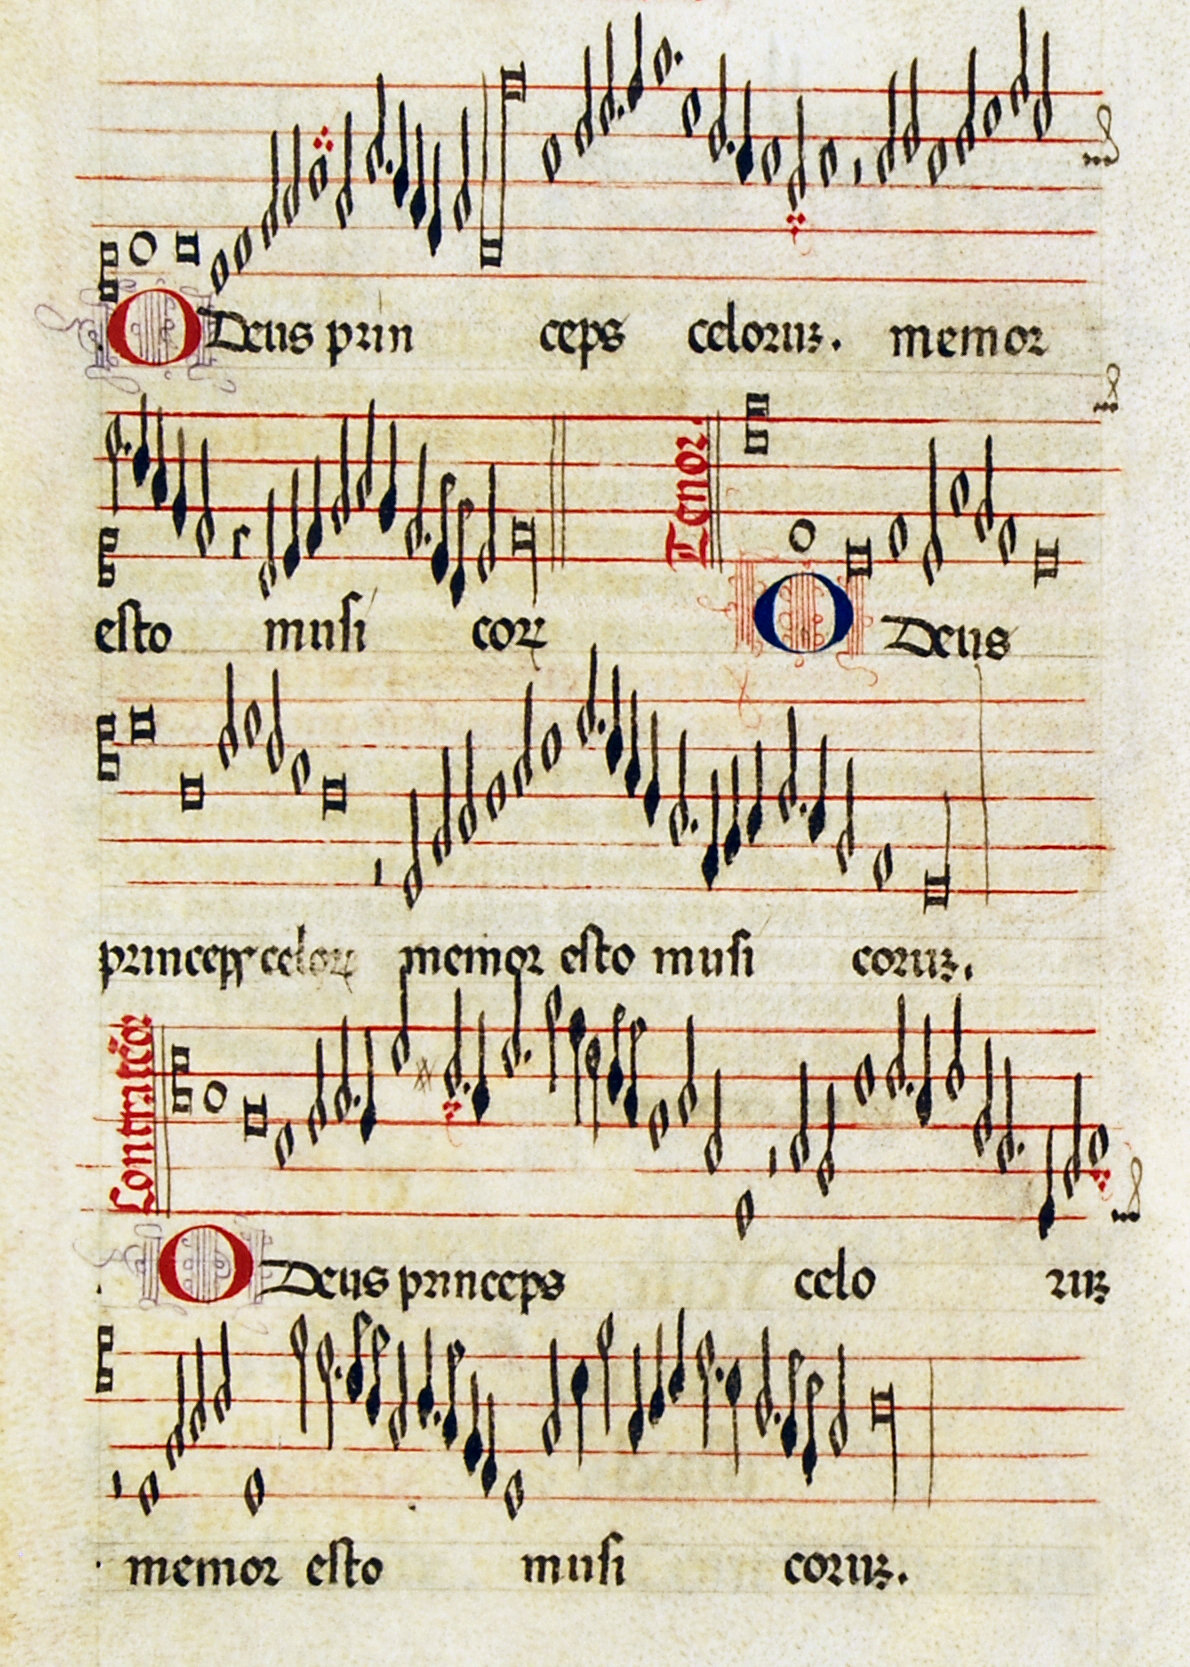 O Deus prin ceps celoruꝫ. memor
esto musi coꝝ
Tenor.
O Deus
princeps celoꝝ memor esto musi coruꝫ.
Contratenor
O Deus princeps celo ruꝫ
memor esto musi coruꝫ.